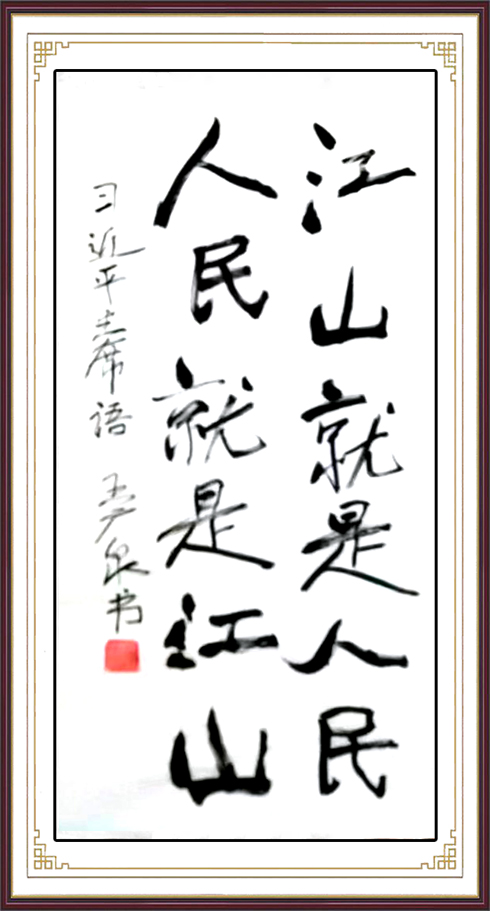 江山就是人民
人民就是江山
习近平主席语 严泉书